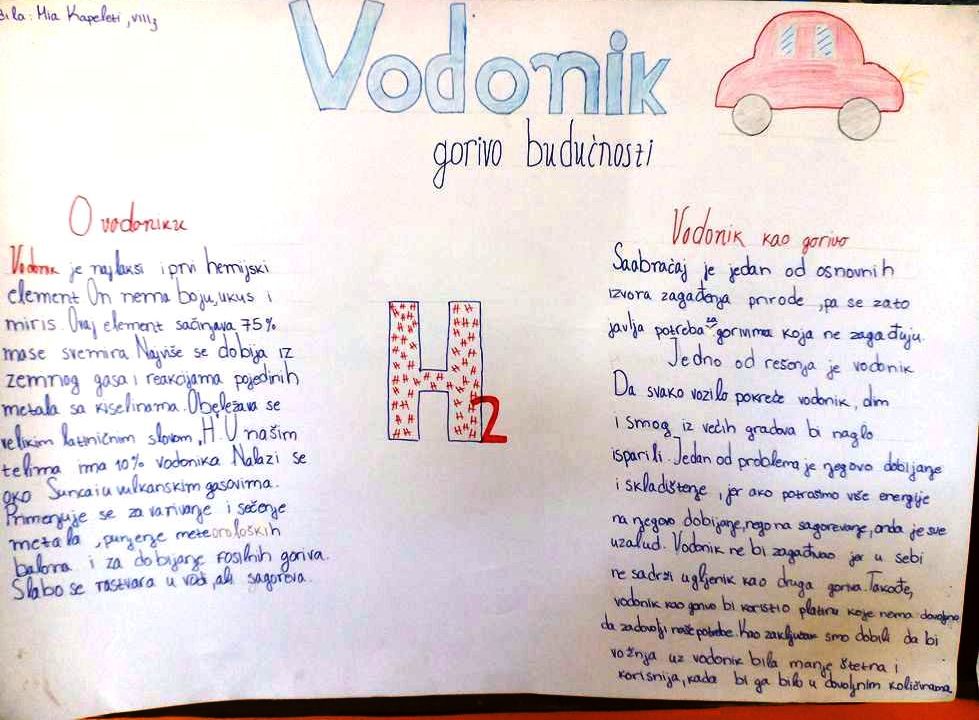 ila: Mia Kapeleti, VIII3
Vodonik
gorivo budućnosti
O vodoniku
Vodonik je najlaksi i prvi hemijski
element On nema boju, ukus i
miris. Ovaj element sačinjava 75%
mase svemira Najviše se dobija iz
zemnog gasa i reakcijama pojedinih
metala sa kiselinama. Obeležava se
velikim latiničnim slovom „H. U našim
telima ima 10% vodonika Nalazi se
oko Sunca i u vulkanskim gasovima.
Primenjuje se za varivanje i sečenje
metala, punjenje meteoroloških
balona i za dobijanje fosilnih goriva.
Slabo se rastvara u vodi, ali sagoreva.
H2
Vodonik kao gorivo
Saobraćaj je jedan od osnovnih
izvora zagađenja prirode, pa se zato
javlja potreba za gorivima koja ne zagađuju.
Jedno od rešenja je vodonik
Da svako vozilo pokreće vodonik, dim
i smog iz većih gradova bi naglo
isparili. Jedan od problema je njegovo dobijanje
i skladištenje, jer ako potrošimo više energije
na njegovo dobijanje, nego na sagorevanje, onda je sve
uzalud. Vodonik ne bi zagađivao jer u sebi
ne sadrži ugljenik kao druga goriva. Takođe,
vodonik kao gorivo bi koristio platinu koje nema dovoljno
da zadovolji naše potrebe. Kao zaključak smo dobili da bi
vožnja uz vodonik bila manje štetna i
korisnija, kada bi ga bilo u dovoljnim količinama